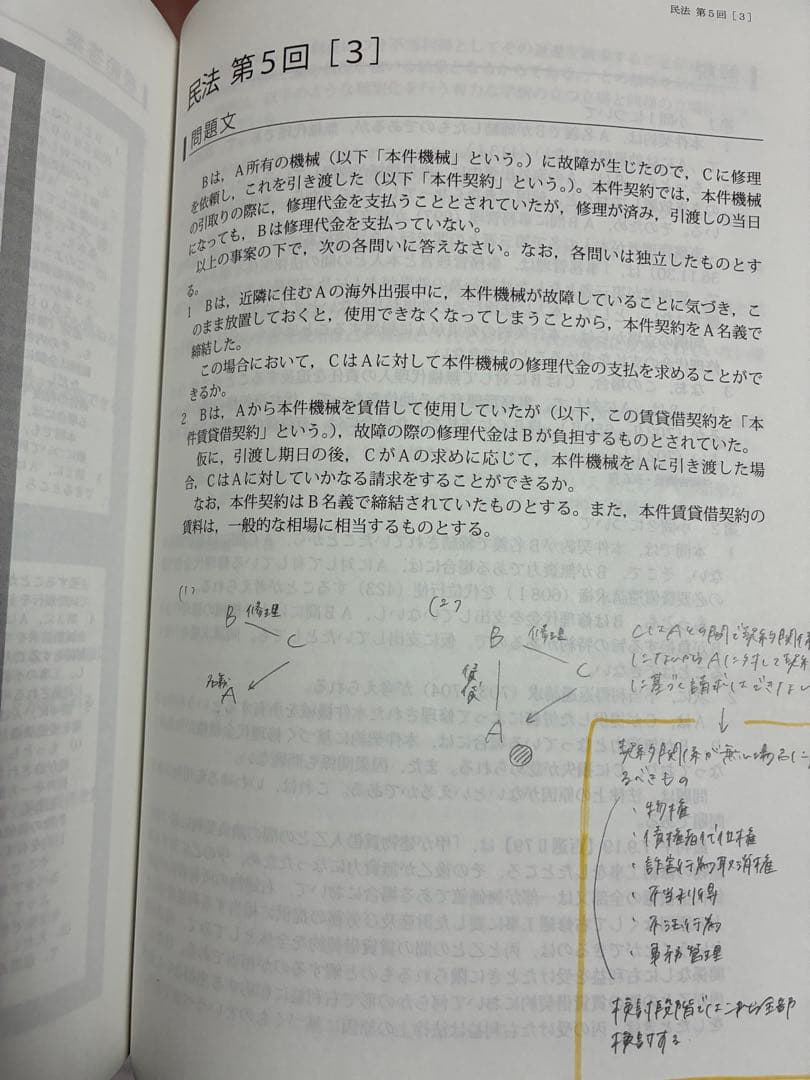 民法 第5回［3］
民法 第5回［3］
問題文
Bは，A所有の機械（以下「本件機械」という。）に故障が生じたので，Cに修理
を依頼し，これを引き渡した（以下「本件契約」という。）。本件契約では，本件機械
の引取りの際に，修理代金を支払うこととされていたが，修理が済み，引渡しの当日
になっても，Bは修理代金を支払っていない。
以上の事案の下で，次の各問いに答えなさい。なお，各問いは独立したものとす
る。
1 Bは，近隣に住むAの海外出張中に，本件機械が故障していることに気づき，こ
のまま放置しておくと，使用できなくなってしまうことから，本件契約をA名義で
締結した。
この場合において，CはAに対して本件機械の修理代金の支払を求めることがで
きるか。
2 Bは，Aから本件機械を賃借して使用していたが（以下，この賃貸借契約を「本
件賃貸借契約」という。），故障の際の修理代金はBが負担するものとされていた。
仮に，引渡し期日の後，CがAの求めに応じて，本件機械をAに引き渡した場
合，CはAに対していかなる請求をすることができるか。
なお，本件契約はB名義で締結されていたものとする。また，本件賃貸借契約の
賃料は，一般的な相場に相当するものとする。
(1)
B 修理 C
名義
A
(2)
B 修理 C
A
CはAとの間で契約関係
にないからAに対して契約
に基づく請求はできない
↓
契約関係が無い場合に
るべきもの
・物権
・債権者代位権
・詐害行為取消権
・不当利得
・不法行為
・事務管理
検討段階ではこれら全部
検討する